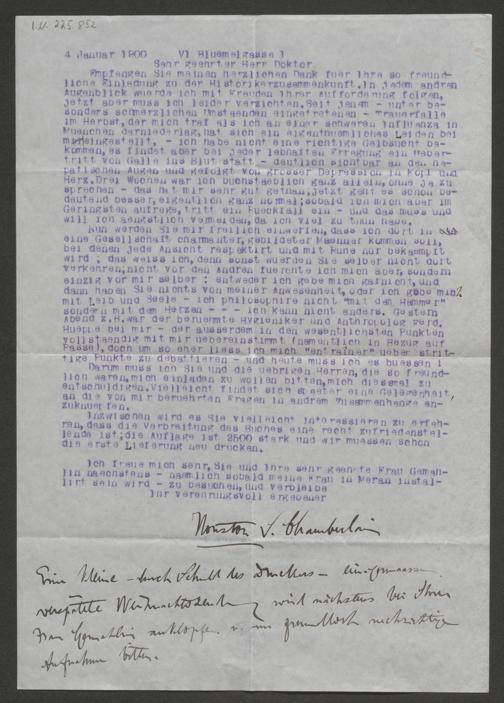 I.N. 225.852
4 Januar 1900 VI Bluemelgasse 1
Sehr geehrter Herr Doktor
Empfangen Sie meinen herzlichen Dank fuer Ihre so freund-
liche Einladung zu der Historikerzusammenkunft. In jedem andren
Augenblick wuerde ich mit Freuden Ihrer Aufforderung folgen,
jetzt aber muss ich leider verzichten. Seit jenem - unter be-
sonders schmerzlichen Umstaenden eingetretenen - Trauerfalle
im Herbst, der mich traf als ich an einer schweren Influenza in
Muenchen darniederlag, hat sich ein eigenthuemliches Leiden bei
mir eingestellt, - ich habe nicht eine richtige Gelbsucht be-
kommen, es findet aber bei jeder lebhaften Erregung ein Ueber-
tritt von Galle ins Blut statt - deutlich sichtbar an den he-
patischen Augen und gefolgt von grosser Depression in Kopf und
Herz. Drei Wochen war ich buchstaeblich ganz allein, ohne je zu
sprechen - das hat mir sehr gut gethan, jetzt geht es schon be-
deutend besser, eigentlich ganz normal; sobald ich mich aber im
Geringsten aufrege, tritt ein Rueckfall ein - und das muss und
will ich aengstlich vermeiden, da ich viel zu thun habe.
Nun werden Sie mir freilich einwerfen, dass ich dort in
eine Gesellschaft charmanter, gebildeter Maenner kommen soll,
bei denen jede Ansicht respektirt und mit Ruhe nur bekaempft
wird; das weiss ich, denn sonst wuerden Sie selber nicht dort
verkehren; nicht vor den Andren fuerchte ich mich aber, sondern
einzig vor mir selber: entweder ich gebe mich garnicht, und
dann haben Sie nichts von meiner Anwesenheit, oder ich gebe mich
mit Leib und Seele - ich philosophire nicht "mit dem Hammer"
sondern mit dem Herzen - - - ich kann nicht anders. Gestern
Abend z.B. war der beruehmte Hygieniker und Anthropolog Prof.
Hueppe bei mir - der ausserdem in den wesentlichsten Punkten
vollstaendig mit mir uebereinstimmt (namentlich in Bezug auf
Rasse), doch um so eher liess ich mich "entraîner" ueber strit-
tige Punkte zu debattieren - und heute muss ich es buessen!
Darum muss ich Sie und die uebrigen Herren, die so freund-
lich waren, mich einladen zu wollen bitten, mich diessmal zu
entschuldigen. Vielleicht findet sich spaeter eine Gelegenheit,
an die von mir beruehrten Fragen in andrem Zusammenhange an-
zuknuepfen.
Inzwischen wird es Sie vielleicht interessieren zu erfah-
ren, dass die Verbreitung des Buches eine recht zufriedenstel-
lende ist; die Auflage ist 2500 stark und wir muessen schon
die erste Lieferung neu drucken.
Ich freue mich sehr, Sie und Ihre sehr geehrte Frau Gemah-
lin naechstens - naemlich sobald meine Frau in Meran instal-
lirt sein wird - zu besuchen, und verbleibe
Ihr verehrungsvoll ergebener
Houston S. Chamberlain
Eine kleine - durch Schuld des Druckers - einigermassen
verspätete Weihnachts wird nächstens bei Ihrer
Frau Gemahlin anklopfen u. um freundlich nachsichtige
Aufnahme bitten.